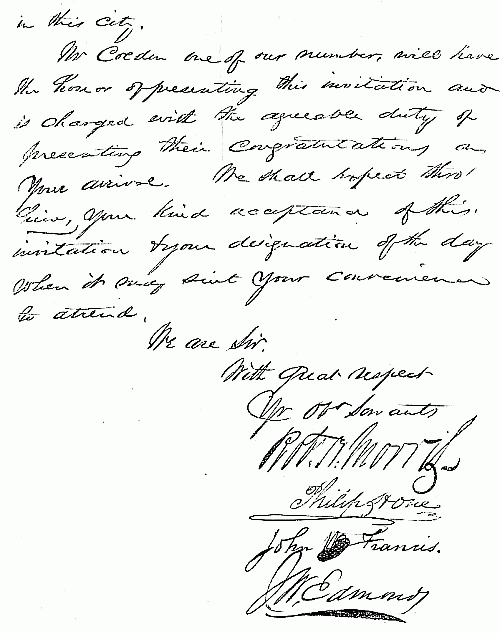 in this city.
Mr Colden one of our number, will have
the honor of presenting this invitation and
is charged with the agreeable duty of
presenting their congratulations on
your arrival. We shall expect thro'
him, your kind acceptance of this
invitation & your designation of the day
when it may suit your convenience
to attend.
We are Sir.
With great respect
Yr Obt Servants
Robt. H. Morris
Philip Hone
John Francis.
J W. Edmonds